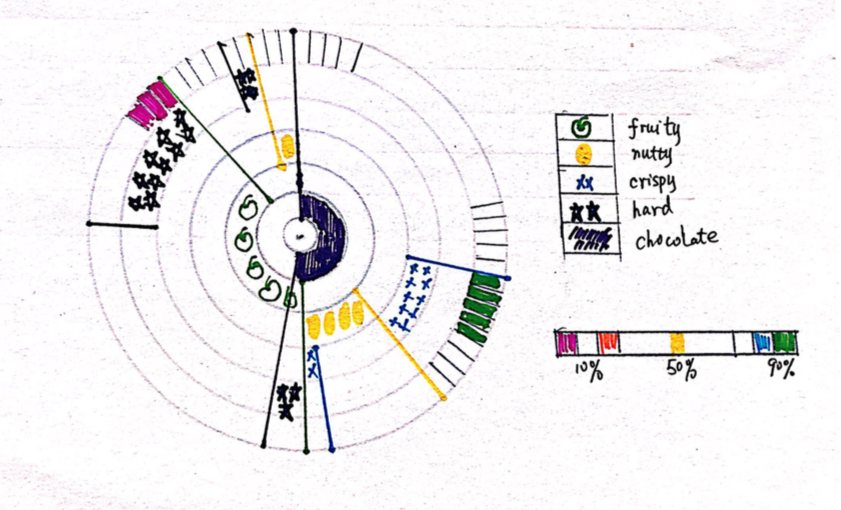 fruity
nutty
crispy
hard
chocolate
10% 50% 90%